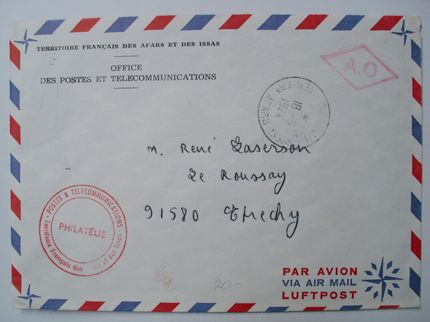 TERRITOIRE FRANÇAIS DES AFARS ET DES ISSAS
OFFICE
DES POSTES ET TELECOMMUNICATIONS
A.O
18
1974
M. René Gaserson
Le Roussay
91580 Etrechy
POSTES & TELECOMMUNICATIONS
PHILATÉLIE
Territoire Français des et des Issas
20-
PAR AVION
VIA AIR MAIL
LUFTPOST